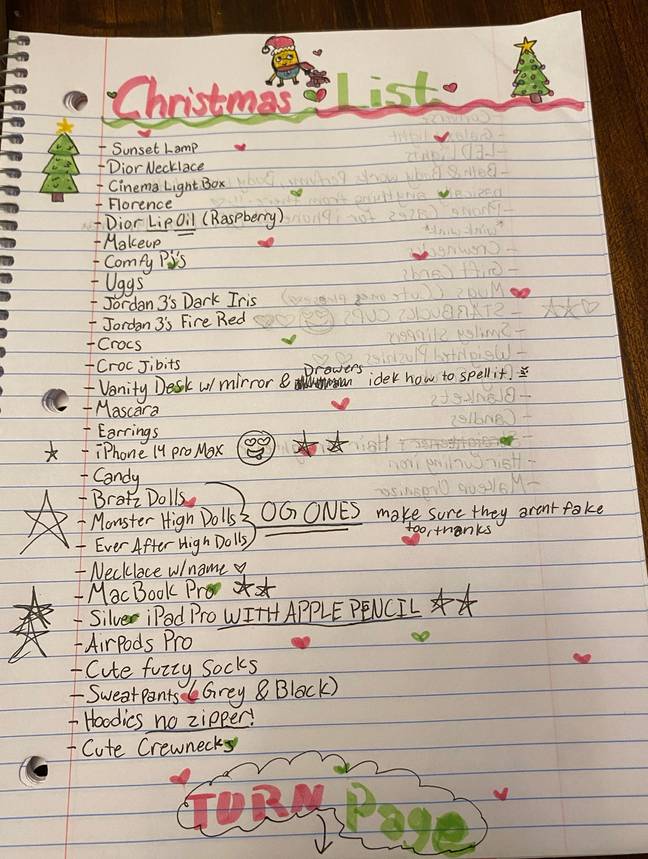 Christmas List
- Sunset Lamp
- Dior Necklace
- Cinema Light Box
- Florence
- Dior Lip Oil (Raspberry)
- Makeup
- Comfy Pj's
- Uggs
- Jordan 3's Dark Iris
- Jordan 3's Fire Red
- Crocs
- Croc Jibits
- Vanity Desk w/ mirror & Drawers idek how to spell it.
- Mascara
- Earrings
- iPhone 14 pro Max
- Candy
- Bratz Dolls
- Monster High Dolls OG ONES make sure they arent fake
too, thanks
- Ever After High Dolls
- Necklace w/ name
- MacBook Pro
- Silver iPad Pro WITH APPLE PENCIL
- AirPods Pro
- Cute fuzzy socks
- Sweatpants (Grey & Black)
- Hoodies no zipper!
- Cute Crewnecks
TURN Page